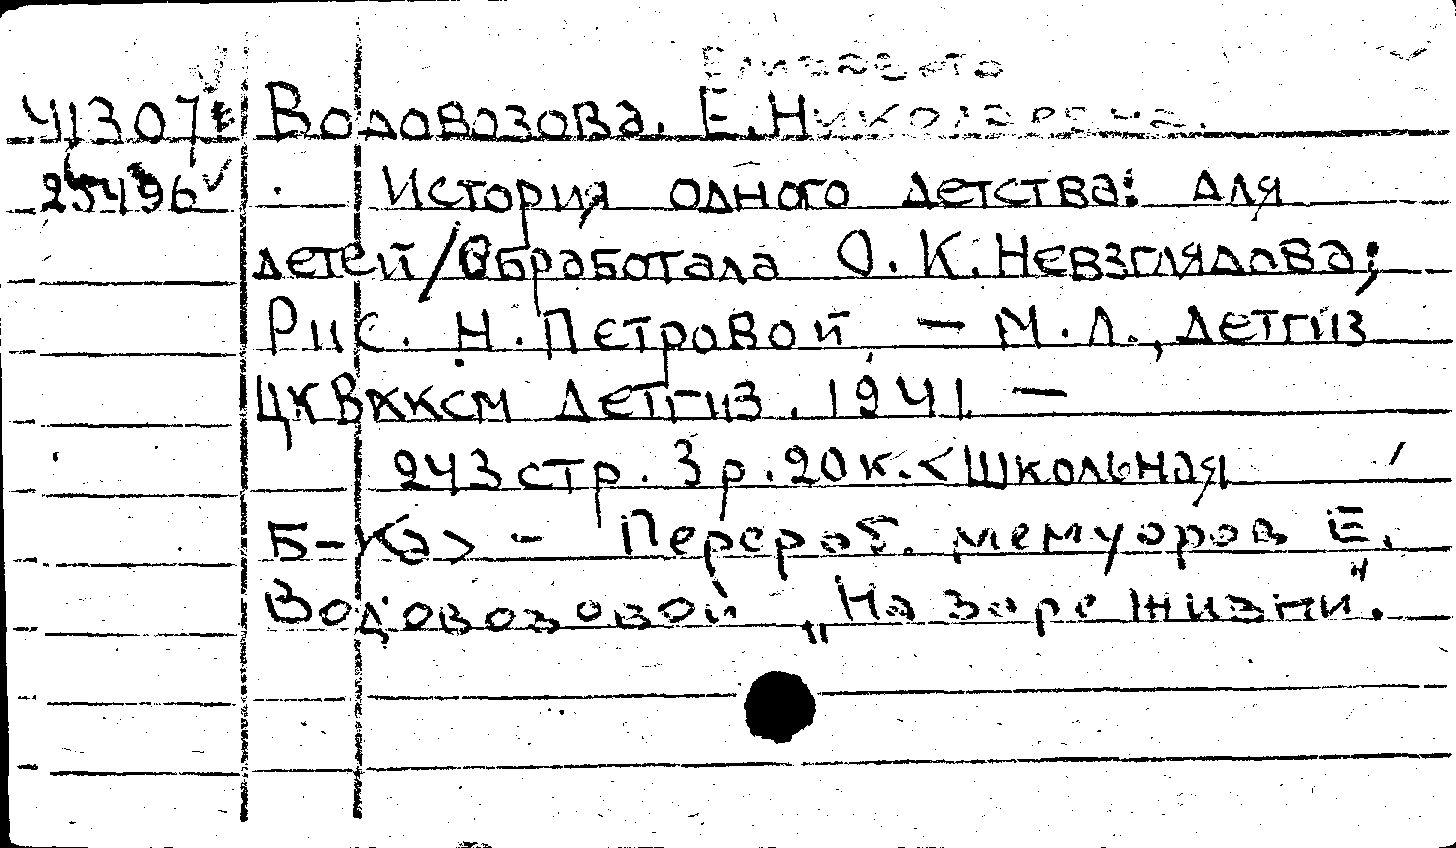 Елизавета
41307 Водовозова. Е. Николаевна.
25496 История одного детства: для
детей / Обработала О. К. Невзглядова;
Рис. Н. Петровой. — М. Л., Детгиз
ЦК ВЛКСМ Детгиз. 1941. —
243 стр. 3 р. 20 к. < Школьная
Б-ка > - Перераб. мемуаров Е. Н.
Водовозовой „На заре жизни".